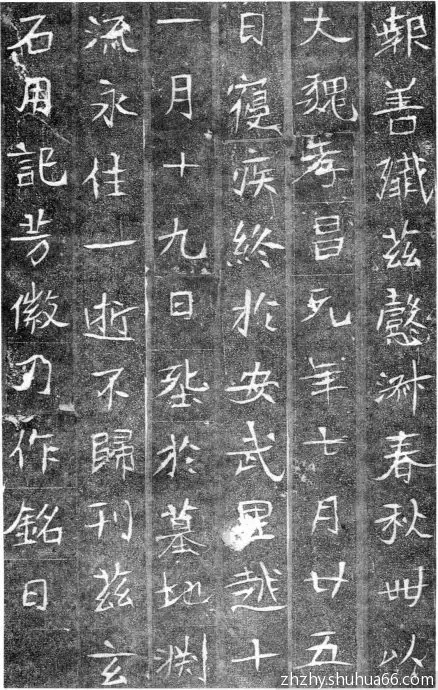 報善殲茲懿淑春秋卌以
大魏孝昌元年七月廿五
日寢疾終於安武里越十
一月十九日於墓地渕
流永住一逝不歸刊茲玄
石用記芳徽乃作銘曰
zhzhy.shuhua66.com